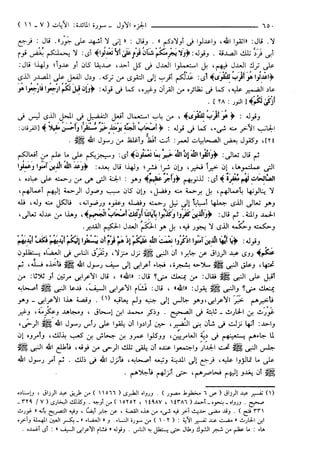 ٦٥٠ الجزء الأول - سورة المائدة: الآيات (٧ - ١١)
لا. قال: «اتقوا الله، واعدلوا في أولادكم». وقال: «إني لا أشهد على جَوْر». قال: فرجع
أبي فَرَدَّ تلك الصدقة. وقوله: ﴿وَلَا يَجْرِمَنَّكُمْ شَنَآنُ قَوْمٍ عَلَى أَلَّا تَعْدِلُوا﴾ أي: لا يحملنكم بُغْض قوم
على ترك العدل فيهم، بل استعملوا العدل في كل أحد، صديقا كان أو عدواً؛ ولهذا قال:
﴿اعْدِلُوا هُوَ أَقْرَبُ لِلتَّقْوَى﴾ أي: عَدْلُكم أقرب إلى التقوى من تركه. ودل الفعل على المصدر الذي
عاد الضمير عليه، كما في نظائره من القرآن وغيره، كما في قوله: ﴿وَإِنْ قِيلَ لَكُمُ ارْجِعُوا فَارْجِعُوا هُوَ
أَزْكَى لَكُمْ﴾ [النور: ٢٨].
وقوله: ﴿هُوَ أَقْرَبُ لِلتَّقْوَى﴾، من باب استعمال أفعل التفضيل في المحل الذي ليس في
الجانب الآخر منه شيء، كما في قوله: ﴿أَصْحَابُ الْجَنَّةِ يَوْمَئِذٍ خَيْرٌ مُسْتَقَرًّا وَأَحْسَنُ مَقِيلًا﴾ [الفرقان:
٢٤]، وكقول بعض الصحابيات لعمر: أنت أفظ وأغلظ من رسول الله ﷺ.
ثم قال تعالى: ﴿وَاتَّقُوا اللَّهَ إِنَّ اللَّهَ خَبِيرٌ بِمَا تَعْمَلُونَ﴾ أي: وسيجزيكم على ما علم من أفعالكم
التي عملتموها، إن خيراً فخير، وإن شرا فشر؛ ولهذا قال بعده: ﴿وَعَدَ اللَّهُ الَّذِينَ آمَنُوا وَعَمِلُوا
الصَّالِحَاتِ لَهُمْ مَغْفِرَةٌ﴾ أي: لذنوبهم ﴿وَأَجْرٌ عَظِيمٌ﴾ وهو: الجنة التي هي من رحمته على عباده،
لا ينالونها بأعمالهم، بل برحمة منه وفضل، وإن كان سبب وصول الرحمة إليهم أعمالهم،
وهو تعالى الذي جعلها أسباباً إلى نيل رحمته وفضله وعفوه ورضوانه، فالكل منه وله، فله
الحمد والمنة. ثم قال: ﴿وَالَّذِينَ كَفَرُوا وَكَذَّبُوا بِآيَاتِنَا أُولَئِكَ أَصْحَابُ الْجَحِيمِ﴾، وهذا من عدله تعالى،
وحكمته وحُكْمه الذي لا يجور فيه، بل هو الحَكَمُ العدل الحكيم القدير.
وقوله: ﴿يَا أَيُّهَا الَّذِينَ آمَنُوا اذْكُرُوا نِعْمَتَ اللَّهِ عَلَيْكُمْ إِذْ هَمَّ قَوْمٌ أَنْ يَبْسُطُوا إِلَيْكُمْ أَيْدِيَهُمْ فَكَفَّ أَيْدِيَهُمْ
عَنْكُمْ﴾ روى عبد الرزاق عن جابر: أن النبي ﷺ نزل منزلا، وتفرّق الناس في العضاه يستظلون
تحتها، وعلق النبي ﷺ سلاحه بشجرة، فجاء أعرابي إلى سيف رسول الله ﷺ فأخذه فسلَّه، ثم
أقبل على النبي ﷺ فقال: من يمنعك مني؟ قال: «الله»، قال الأعرابي مرتين أو ثلاثا: من
يمنعك مني؟ والنبي ﷺ يقول: «الله»، قال: فَشَام الأعرابي السيفَ، فدعا النبي ﷺ أصحابه
فأخبرهم خبرَ الأعرابي، وهو جالس إلى جنبه ولم يعاقبه (١). وقصة هذا الأعرابي - وهو
غَوْرَث بن الحارث - ثابتة في الصحيح. وذكر محمد ابن إسحاق، ومجاهد وعكرمة، وغير
واحد: أنها نزلت في شأن بني النَّضِير، حين أرادوا أن يلقوا على رأس رسول الله ﷺ الرحَى،
لما جاءهم يستعينهم في ديَةِ العامرِيَّين، ووكلوا عمرو بن جحاش بن كعب بذلك، وأمروه إن
جلس النبي ﷺ تحت الجدار واجتمعوا عنده أن يلقي تلك الرحى من فوقه، فأطلع الله النبي ﷺ
على ما تمالؤوا عليه، فرجع إلى المدينة وتبعه أصحابه، فأنزل الله في ذلك، ثم أمر رسول الله
ﷺ أن يغدو إليهم فحاصرهم، حتى أنزلهم فأجلاهم.